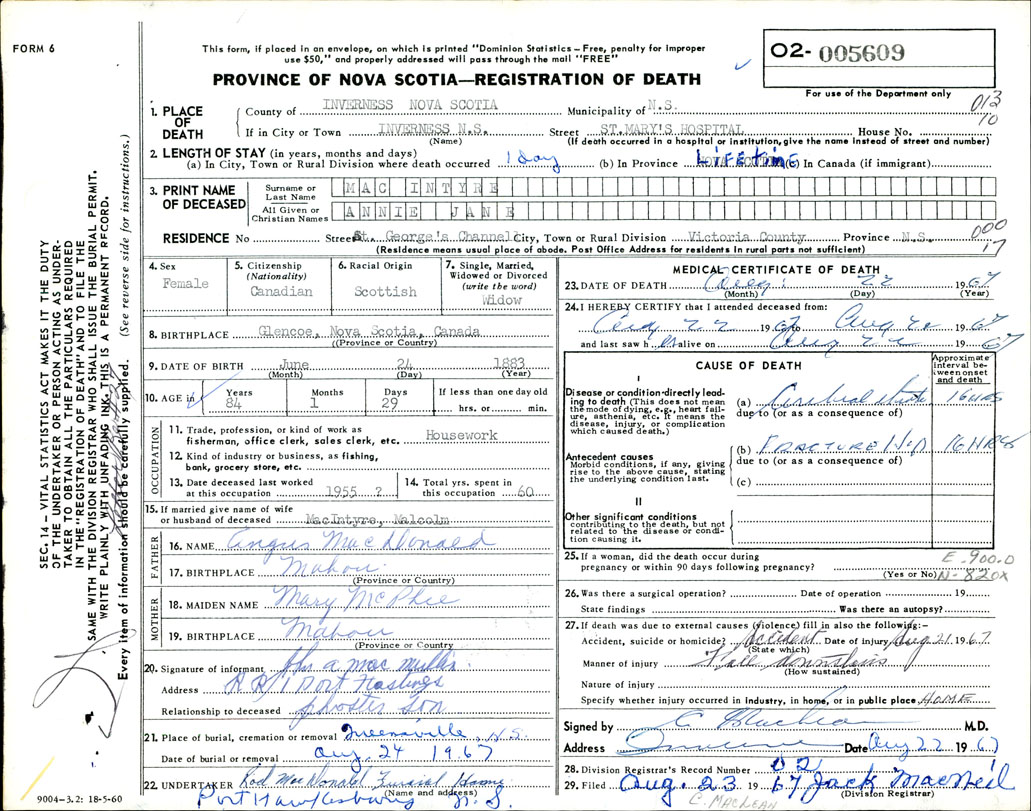 FORM 6
This form, if placed in an envelope, on which is printed "Dominion Statistics – Free, penalty for improper
use $50," and properly addressed will pass through the mail "FREE"
PROVINCE OF NOVA SCOTIA—REGISTRATION OF DEATH
O2- 005609
For use of the Department only
013
10
1. PLACE OF DEATH
County of INVERNESS NOVA SCOTIA Municipality of N.S.
If in City or Town INVERNESS N.S. Street ST. MARY'S HOSPITAL House No.
(Name) (If death occurred in a hospital or institution, give the name instead of street and number)
2. LENGTH OF STAY (in years, months and days)
(a) In City, Town or Rural Division where death occurred 1 Day (b) In Province LIFETIME (c) in Canada (if immigrant)
3. PRINT NAME OF DECEASED
Surname or Last Name MAC INTYRE
All Given or Christian Names ANNIE JANE
000
17
RESIDENCE No Street St. George's Channel City, Town or Rural Division Victoria County Province N.S.
(Residence means usual place of abode. Post Office Address for residents in rural parts not sufficient)
4. Sex
Female
5. Citizenship
(Nationality)
Canadian
6. Racial Origin
Scottish
7. Single, Married,
Widowed or Divorced
(write the word)
Widow
8. BIRTHPLACE Glencoe, Nova Scotia, Canada
((Province or Country)
9. DATE OF BIRTH June 24 1883
(Month) (Day) (Year)
10. AGE in Years Months Days If less than one day old
84 1 29 hrs. or min.
OCCUPATION
11. Trade, profession, or kind of work as
fisherman, office clerk, sales clerk, etc. Housework
12. Kind of industry or business, as fishing,
bank, grocery store, etc.
13. Date deceased last worked
at this occupation 1955 ?
14. Total yrs. spent in
this occupation 60
15. If married give name of wife
or husband of deceased MacIntyre, Malcolm
FATHER
16. NAME Angus MacDonald
17. BIRTHPLACE Mabou
(Province or Country)
MOTHER
18. MAIDEN NAME Mary McPhie
19. BIRTHPLACE Mabou
(Province or Country)
20. Signature of informant John A Mac Mullin
Address RR 1 Port Hastings
Relationship to deceased phoster Son
21. Place of burial, cremation or removal Greenville, N.S.
Date of burial or removal Aug. 24 1967
22. UNDERTAKER Rod MacDonald Funeral Home
(Name and address)
Port Hawkesbury N.S.
MEDICAL CERTIFICATE OF DEATH
23. DATE OF DEATH Aug. 22 1967
(Month) (Day) (Year)
24. I HEREBY CERTIFY that I attended deceased from:
Aug 22 1967 to Aug 22 1967
and last saw h alive on Aug 22 1967
CAUSE OF DEATH
Approximate interval between onset and death
I
Disease or condition directly leading to death (This does not mean
the mode of dying, e.g., heart failure, asthenia, etc. It means the
disease, injury, or complication
which caused death.)
(a) Cerebral 16 HRS
due to (or as a consequence of)
(b) FRACTURE Hip 16 HRS
due to (or as a consequence of)
(c)
Antecedent causes
Morbid conditions, if any, giving
rise to the above cause, stating
the underlying condition last.
II
Other significant conditions
contributing to the death, but not
related to the disease or condition causing it.
25. If a woman, did the death occur during
pregnancy or within 90 days following pregnancy?
(Yes or No)
E-900.0
N-820X
26. Was there a surgical operation? Date of operation 19
State findings Was there an autopsy?
27. If death was due to external causes (violence) fill in also the following:–
Accident, suicide or homicide? Accident Date of injury Aug 21 1967
(State which)
Manner of injury Fall downstairs
(How sustained)
Nature of injury
Specify whether injury occurred in industry, in home, or in public place HOME
Signed by C MacLean M.D.
Address Inverness Date Aug 22 1967
28. Division Registrar's Record Number 02
29. Filed Aug. 23 1967 Jack MacNeil
(Division Registrar)
C. MACLEAN
9004-3.2: 18-5-60
SEC. 14 – VITAL STATISTICS ACT MAKES IT THE DUTY
OF THE UNDERTAKER OR PERSON ACTING AS UNDERTAKER TO OBTAIN ALL THE PARTICULARS REQUIRED
IN THE "REGISTRATION OF DEATH" AND TO FILE THE
SAME WITH THE DIVISION REGISTRAR WHO SHALL ISSUE THE BURIAL PERMIT.
WRITE PLAINLY WITH UNFADING INK. THIS IS A PERMANENT RECORD.
Every item of information should be carefully supplied. (See reverse side for instructions.)